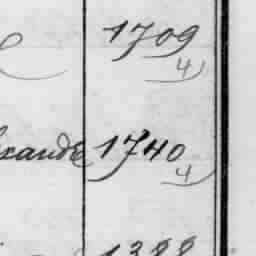 1709
4
xandre 1740
4
1388